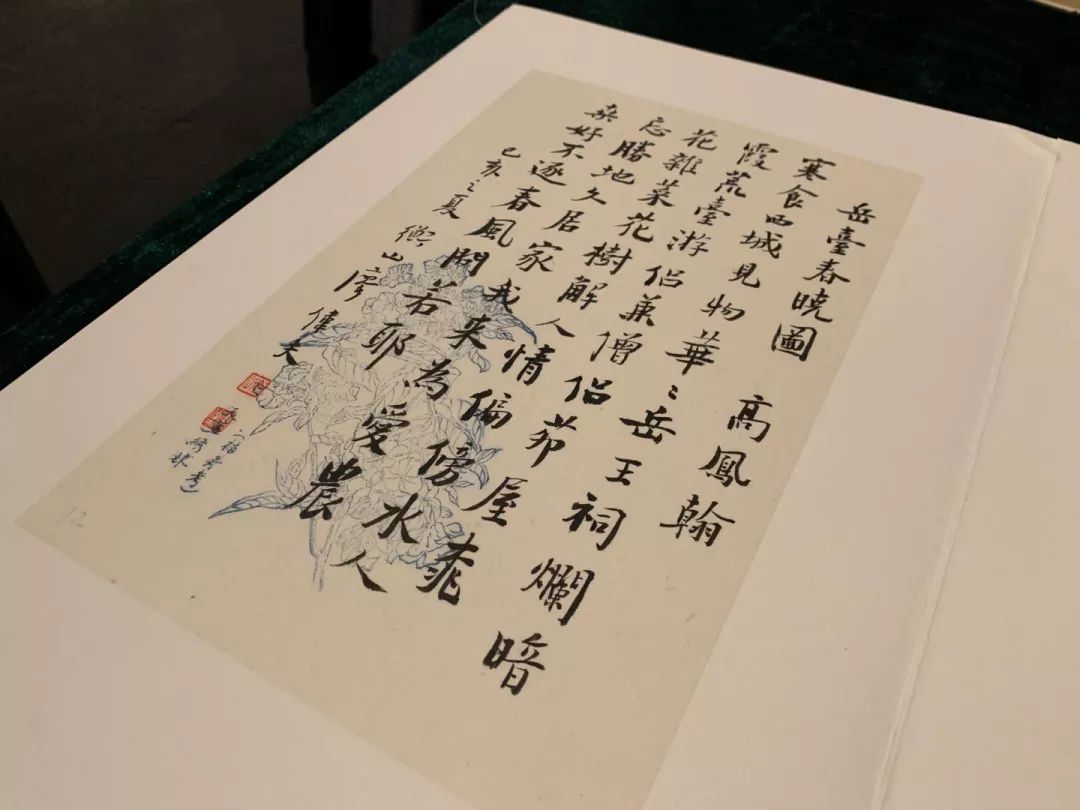 岳臺春曉圖 高鳳翰
寒食西城見物華〻岳王祠爛暗
霞荒臺游侶兼僧侶茆屋桃
花雜菜花樹解人情偏傍水人
忘勝地久居家我來為愛農
桒好不逐春風鬥若耶
己亥之夏 僊山廖偉夫
12